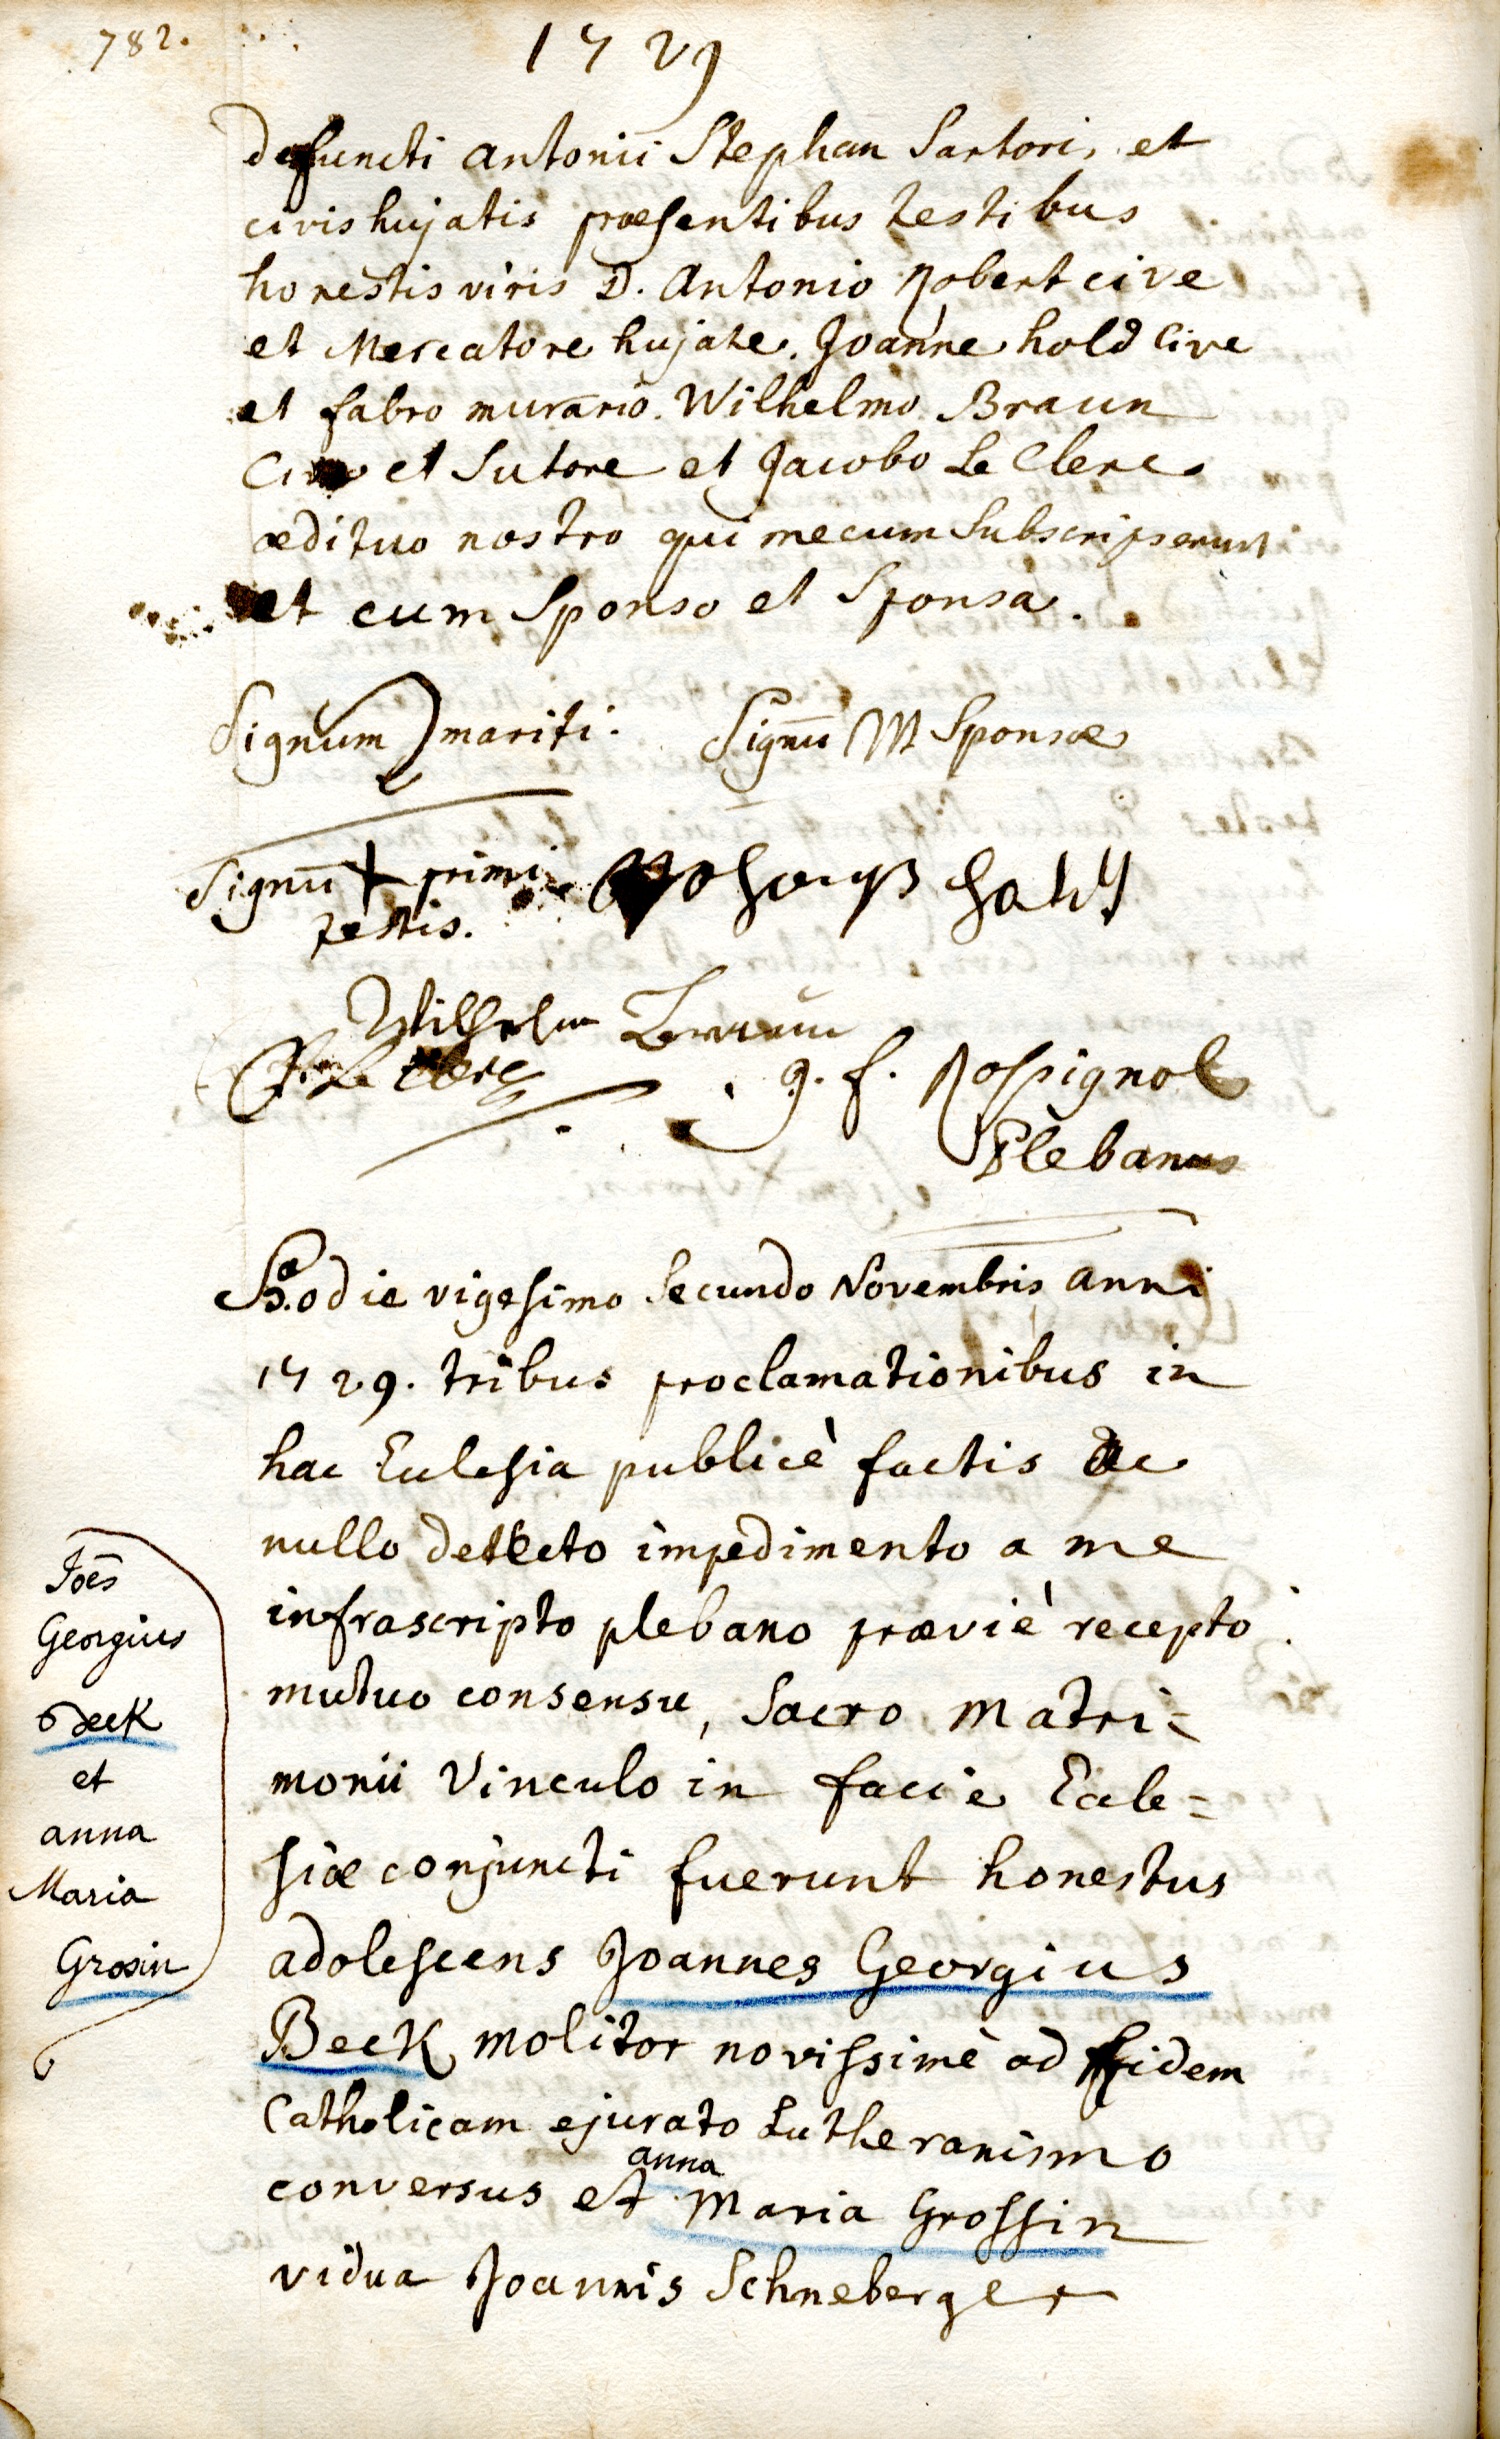 782.
1729
defuncti Antonii Stephan Sartori, et
civis hujatis præsentibus testibus
honestis viris D. Antonio Robert cive
et Mercatore hujate. Joanne hold Cive
et fabro murario. Wilhelmo Braun
Cive et Sutore et Jacobo Le Clerc
ædituo nostro qui mecum Subscripserunt
et cum Sponso et Sponsa.
Signum mariti. Signū M Sponsæ
Signū + primi
testis.
Wilhelm Braun
Le Clerc
g. f. Rossignol
Plebanus
Hodie vigesimo Secundo Novembris anni
1729. tribus proclamationibus in
hac Ecclesia publicè factis ac
nullo detecto impedimento a me
infrascripto plebano præviè recepto
mutuo consensu, Sacro Matri=
monii Vinculo in facie Eccle=
siæ conjuncti fuerunt honestus
adolescens Joannes Georgius
Beck molitor novissimè ad fidem
Catholicam ejurato Lutheranismo
conversus et anna Maria Grossin
vidua Joannis Schneberger
Joēs
Georgius
Beck
et
anna
Maria
Grosin